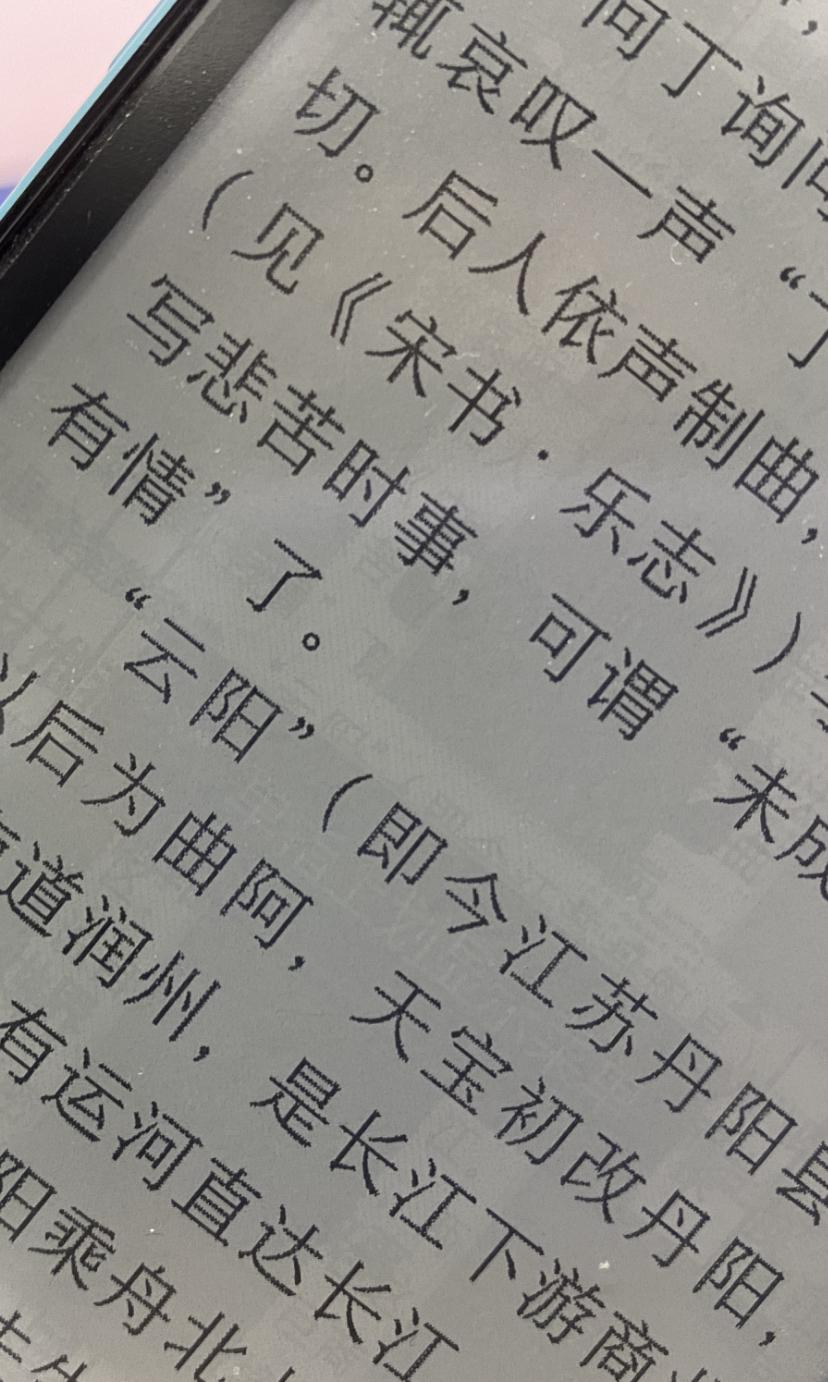 问丁询问
辄哀叹一声“丁
切。后人依声制曲，
（见《宋书·乐志》）
写悲苦时事，可谓“未成
有情”了。
“云阳”（即今江苏丹阳县
以后为曲阿，天宝初改丹阳，
道润州，是长江下游商业
有运河直达长江
阳乘舟北